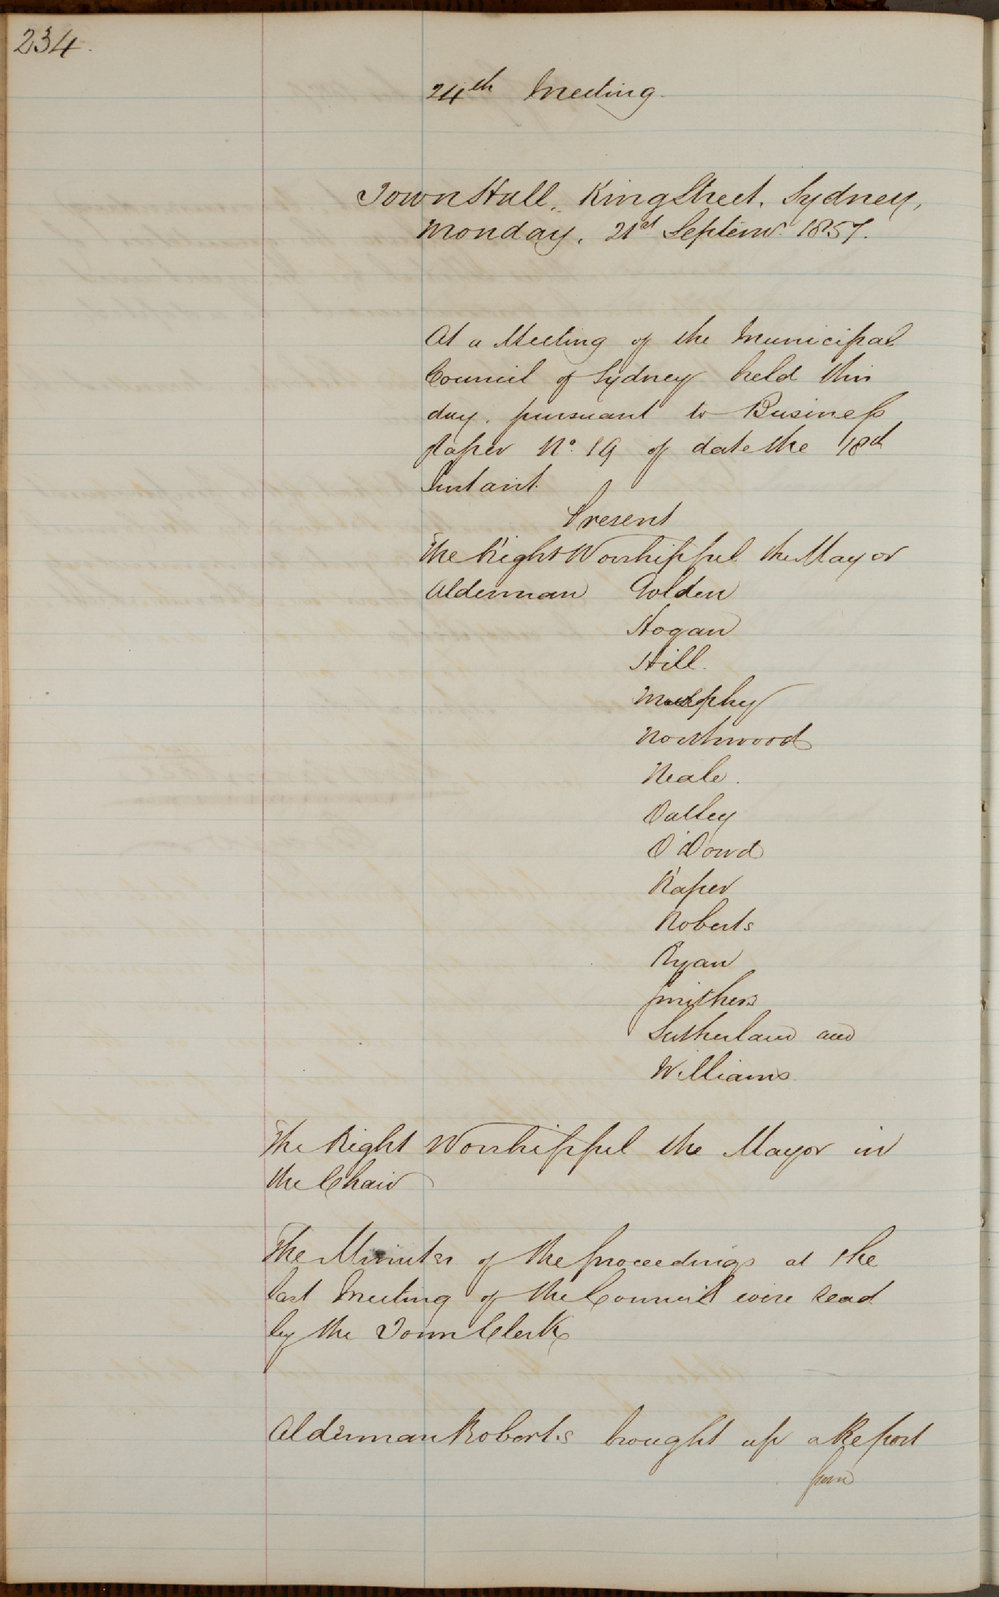 234.
24th Meeting.
Town Hall, King Street, Sydney,
Monday, 21st Septemr 1857.
At a Meeting of the Municipal
Council of Sydney held this
day, pursuant to Business
Paper No. 19 of date the 18th
Instant.
Present
The Right Worshipful the Mayor
Alderman Golden
Hogan
Hill.
Murphy
Northwood
Neale.
Oatley
O'Dowd
Raper
Roberts
Ryan
Smithers
Sutherland and
Williams
The Right Worshipful the Mayor in
the Chair
The Minutes of the proceedings at the
last Meeting of the Council were read
by the Town Clerk
Alderman Roberts brought up a Report
from